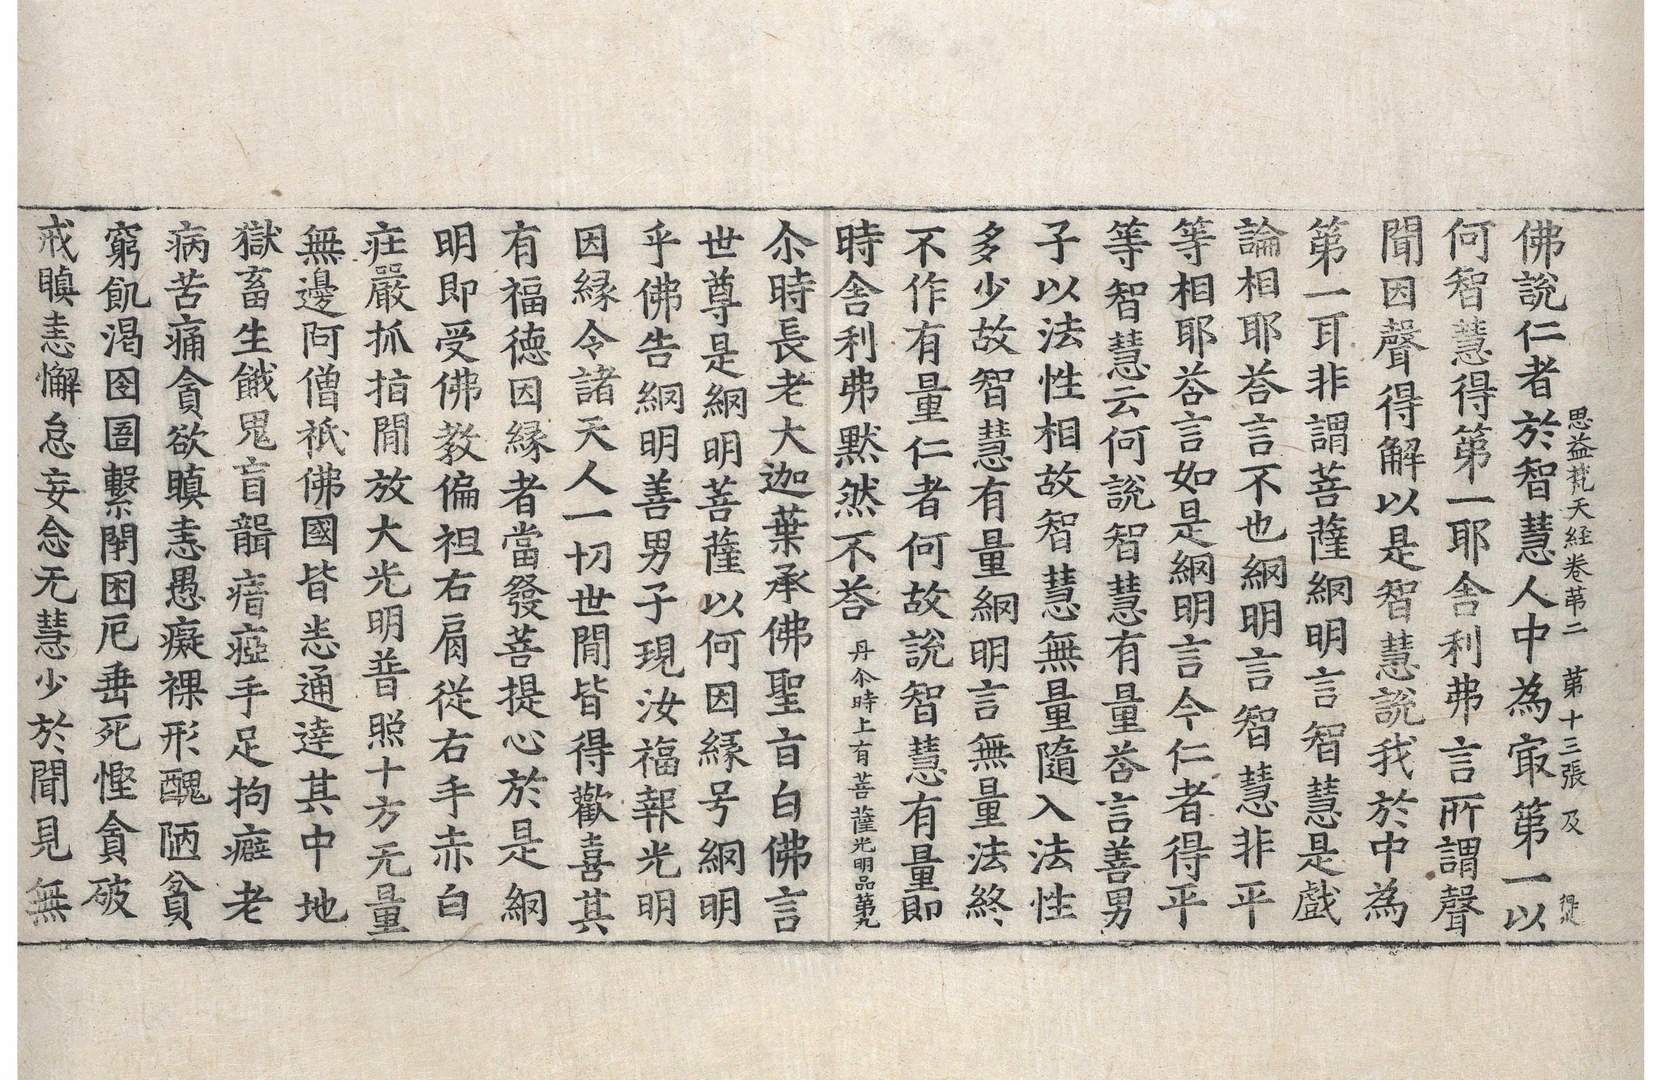 思益梵天経卷苐二 苐十三張 及
佛說仁者於智慧人中為冣第一以
何智慧得第一耶舍利弗言所謂聲
聞因聲得解以是智慧說我於中為
第一耳非謂菩薩網明言智慧是戲
論相耶荅言不也網明言智慧非平
等相耶荅言如是網明言今仁者得平
等智慧云何說智慧有量荅言善男
子以法性相故智慧無量隨入法性
多少故智慧有量網明言無量法終
不作有量仁者何故說智慧有量即
時舍利弗默然不荅 丹尒時上有菩薩光明品第九
尒時長老大迦葉承佛聖旨白佛言
世尊是網明菩薩以何因緣号網明
乎佛告網明善男子現汝福報光明
因緣令諸天人一切世閒皆得歡喜其
有福德因緣者當發菩提心於是網
明即受佛教偏袒右肩從右手赤白
莊嚴抓指閒放大光明普照十方无量
無邊阿僧祇佛國皆悉通達其中地
獄畜生餓鬼盲聾瘖瘂手足拘癖老
病苦痛貪欲瞋恚愚癡裸形醜陋貧
窮飢渴囹圄繫閇困厄垂死慳貪破
戒瞋恚懈怠妄念无慧少於聞見無